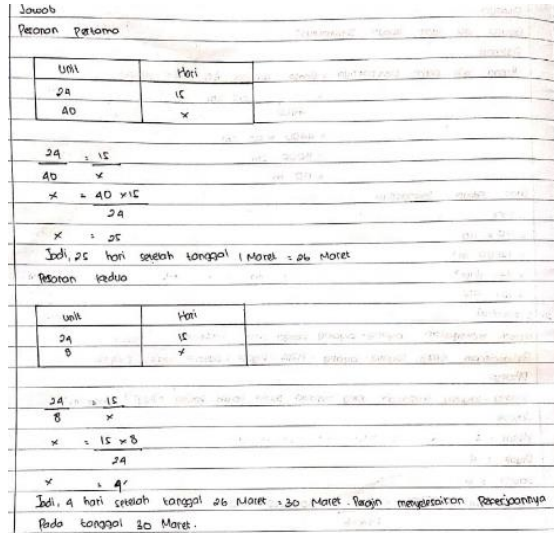 Jawab
Pesanan Pertama
Unit Hari
24 15
40 x
24 = 15
40 x
x = 40 x 15
24
x = 25
Jadi, 25 hari setelah tanggal 1 Maret = 26 Maret
Pesanan kedua
Unit Hari
24 15
8 x
24 = 15
8 x
x = 15 x 8
24
x = 4
Jadi, 4 hari setelah tanggal 26 Maret = 30 Maret. Perajin menyelesaikan Pekerjaannya
Pada tanggal 30 Maret.